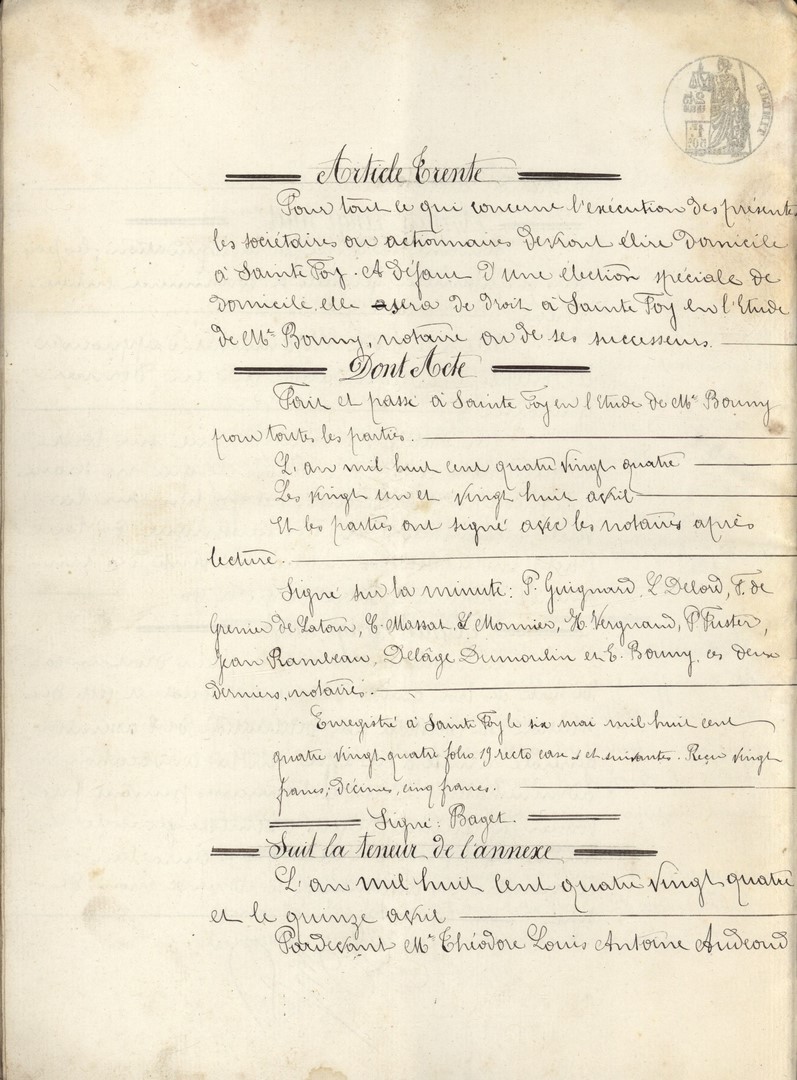 Article Trente
Pour tout ce qui concerne l'exécution des présentes
les sociétaires ou actionnaires devront élire domicile
à Sainte Foy. A défaut d'une élection spéciale de
domicile elle sera de droit à Sainte Foy en l'Etude
de Me Bonny, notaire ou de ses successeurs.
Dont Acte
Fait et passé à Sainte Foy en l'Etude de Me Bonny
pour toutes les parties.
L'an mil huit cent quatre vingt quatre
Les vingt un et vingt huit avril
Et les parties ont signé avec les notaires après
lecture.
Signé sur la minute: P. Guignard, L. Delord, F. de
Grenier de Latour, E. Massat, L. Monnier, H. Vergnaud, P. Fuster,
Jean Rambeau, Delâge Dumoulin et E. Bonny, ces deux
derniers, notaires.
Enregistré à Sainte Foy le six mai mil huit cent
quatre vingt quatre folio 19 recto case et suivantes. Reçu vingt
francs; décimes, cinq francs.
Signé: Baget.
Suit la teneur de l'annexe
L'an mil huit cent quatre vingt quatre
et le quinze avril
Pardevant Me Théodore Louis Antoine Audeoud